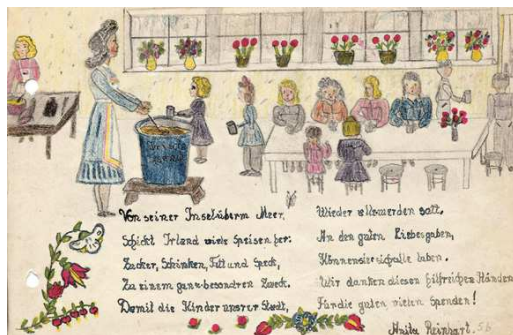 Von seiner Insel überm Meer,
Schickt Irland viele Speisen her:
Zucker, Schinken, Fett und Speck,
Zu einem ganz besondren Zweck.
Damit die Kinder unsrer Stadt,
Wieder alle werden satt,
An den guten Liebesgaben,
Können sie sich alle laben.
Wir danken diesen hilfreichen Händen
Für die guten vielen Spenden!
Anita Reinhart. 5b